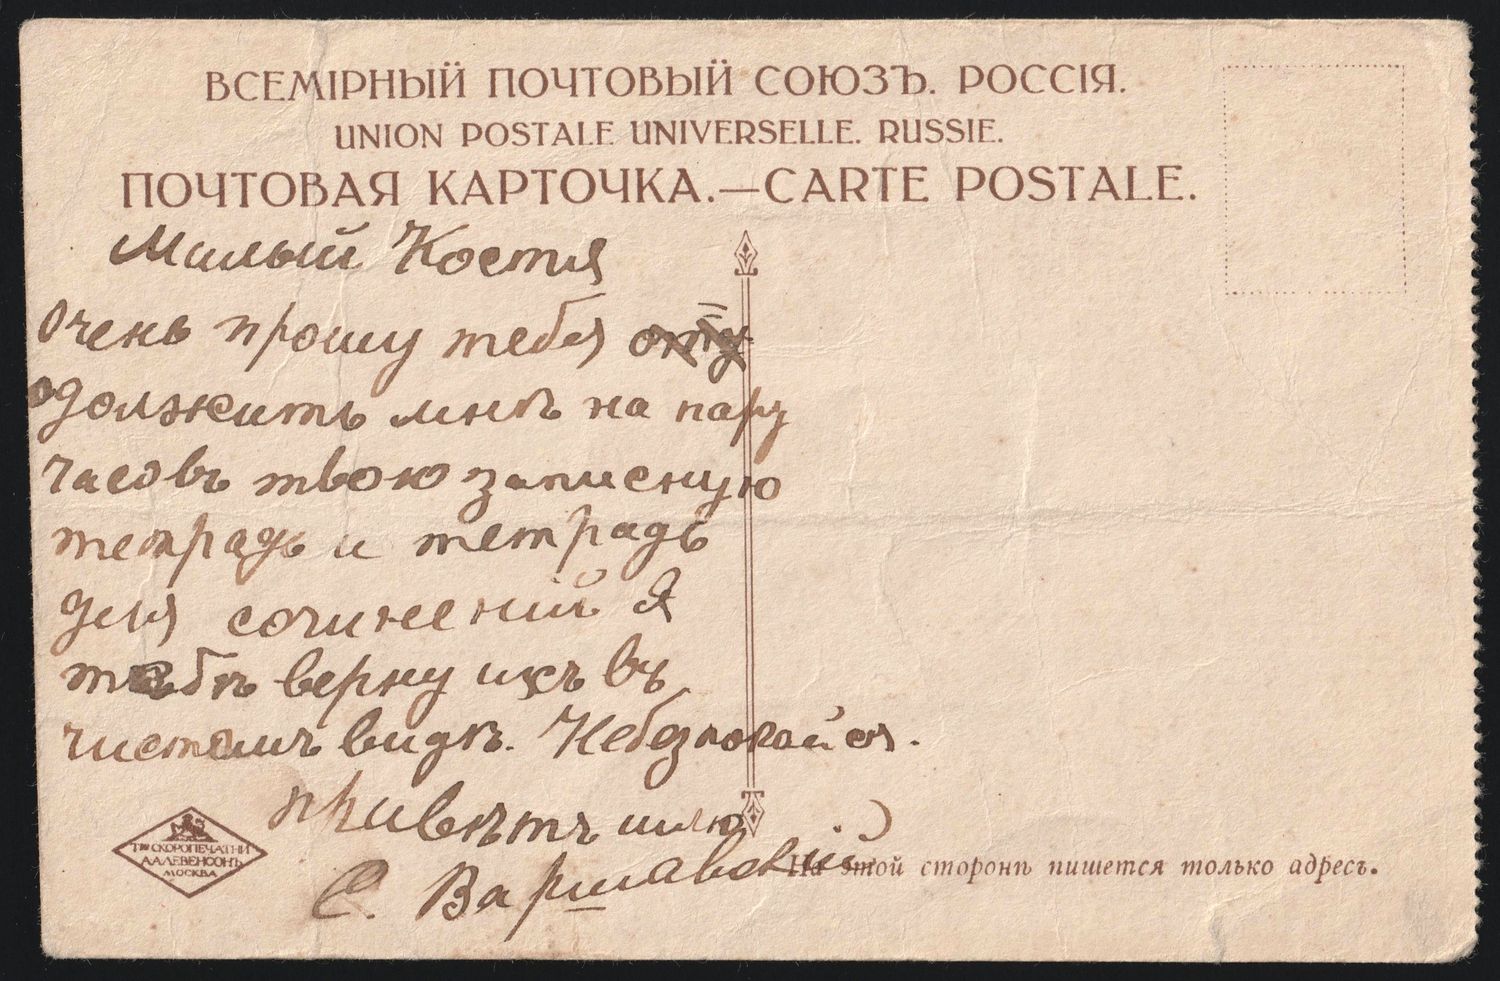 ВСЕМІРНЫЙ ПОЧТОВЫЙ СОЮЗЪ. РОССІЯ.
UNION POSTALE UNIVERSELLE. RUSSIE.
ПОЧТОВАЯ КАРТОЧКА.—CARTE POSTALE.
Милый Костя
Очень прошу тебя
одолжить мнѣ на пару
часовъ твою записную
тетрадь и тетрадь
для сочиненій Я
тебѣ верну ихъ въ
чистомъ видѣ. Небезпокайся.
привѣтъ шлю
С. Варшавскій
Т-ВО СКОРОПЕЧАТНИ
А.А.ЛЕВЕНСОНЪ
МОСКВА
На этой сторонѣ пишется только адресъ.